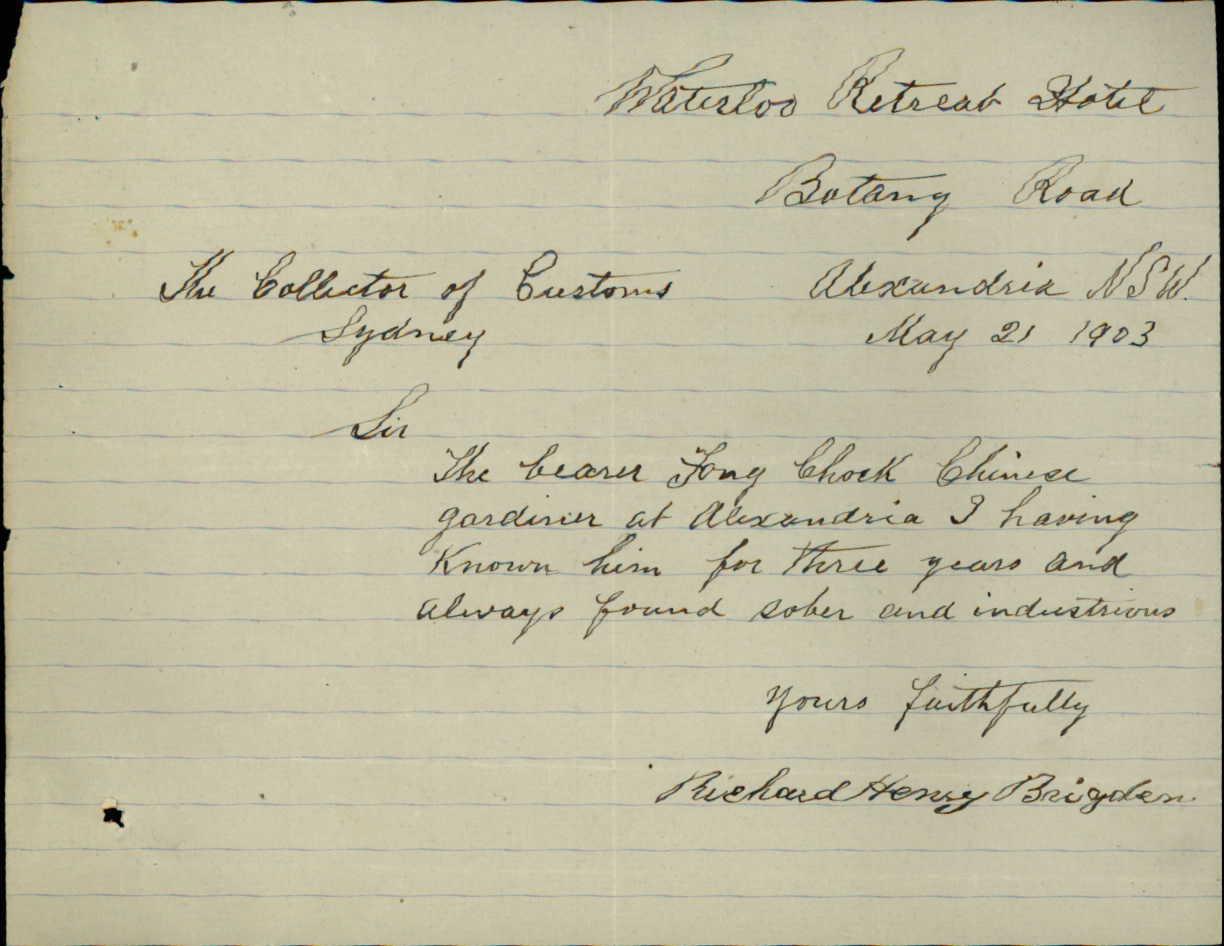 Waterloo Retreat Hotel
Botany Road
The Collector of Customs
Sydney
Alexandria NSW.
May 21 1903
Sir
The bearer Fong Chock Chinese
gardiner at Alexandria I having
Known him for three years and
always found sober and industrious
Yours faithfully
Richard Henry Brigden